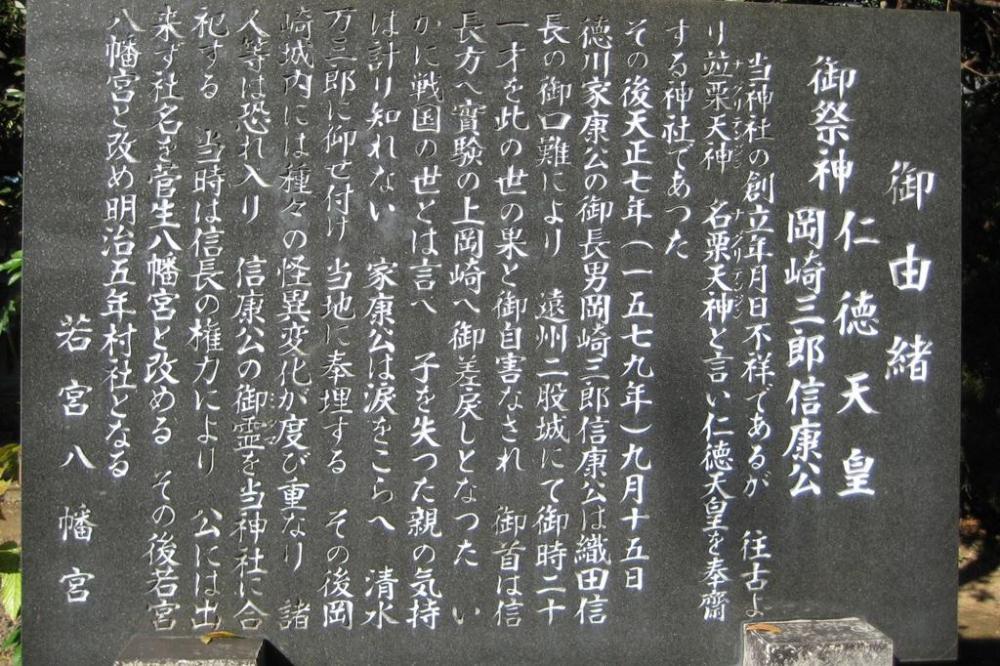 御由緒
御祭神 仁徳天皇
岡崎三郎信康公
当神社の創立年月日不祥であるが 往古よ
り竝栗天神 名栗天神と言い仁徳天皇を奉齋
ナグリテンジン ナグリテンジン
する神社であつた
その後天正七年(一五七九年)九月十五日
徳川家康公の御長男岡崎三郎信康公は織田信
長の御口難により 遠州二股城にて御時二十
一才を此の世の果と御自害なされ 御首は信
長方へ實験の上岡崎へ御差戻しとなつた い
かに戦国の世とは言へ 子を失つた親の気持
は計り知れない 家康公は涙をこらへ 清水
万三郎に御せ付け 当地に奉埋する その後岡
崎城内には種々の怪異変化が度び重なり 諸
人等は恐れ入り 信康公の御霊を当神社に合
ミタマ
祀する 当時は信長の権力により 公には出
来ず社名を菅生八幡宮と改める その後若宮
八幡宮と改め明治五年村社となる
若宮八幡宮